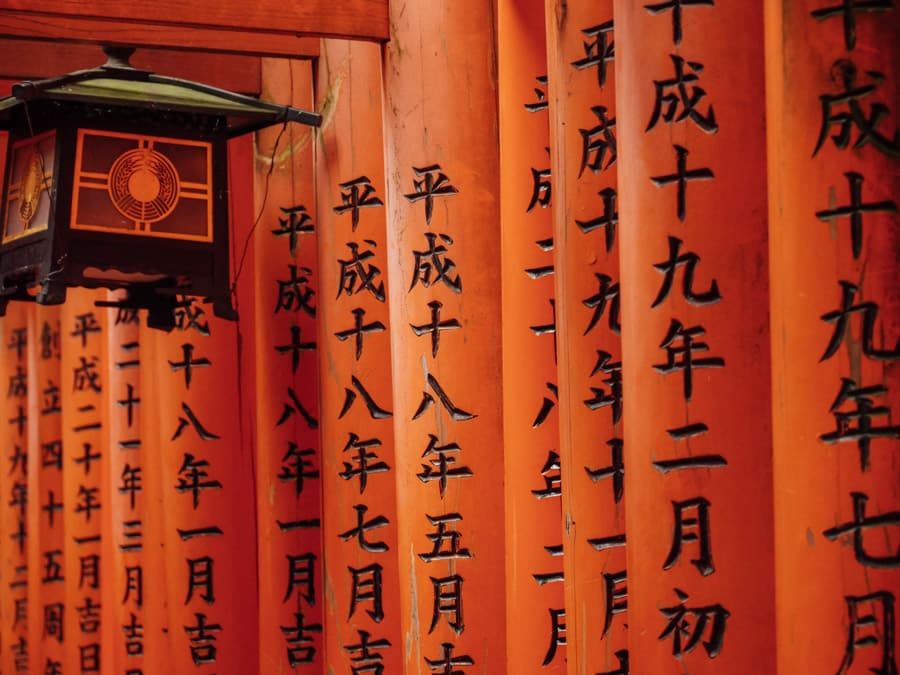 平成十九年七月
平成十九年二月初
平成十九年十一月
平成二十八年二月
平成十八年五月吉
平成十八年七月吉
平成十八年一月吉
成十八年一月吉
成二十一年三月吉
平成二十年一月吉日
創立四十五周年
平成十九年十二月吉